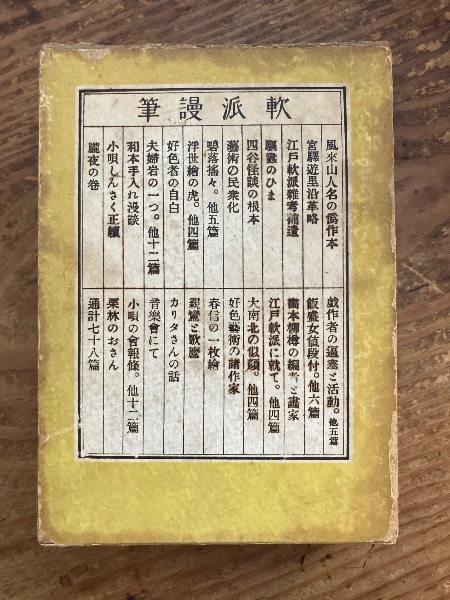 軟派謾筆
風來山人名の僞作本
宮驛遊里沿革略
江戸軟派雜考補遺
驅蠹のひま
四谷怪談の根本
藝術の民衆化
碧落搖々。他五篇
浮世繪の虎。他四篇
好色者の自白
夫婦岩の一つ。他十二篇
和本手入れ漫談
小唄しんさく正續
朧夜の卷
戯作者の逼塞と活動。他五篇
飯盛女値段付。他六篇
畵本柳樽の編者と畵家
江戸軟派に就て。他四篇
大南北の似顏。他四篇
好色藝術の諸作家
春信の一枚繪
親鸞と歌麿
カリタさんの話
音樂會にて
小唄の會報條。他十二篇
栗林のおさん
通計七十八篇